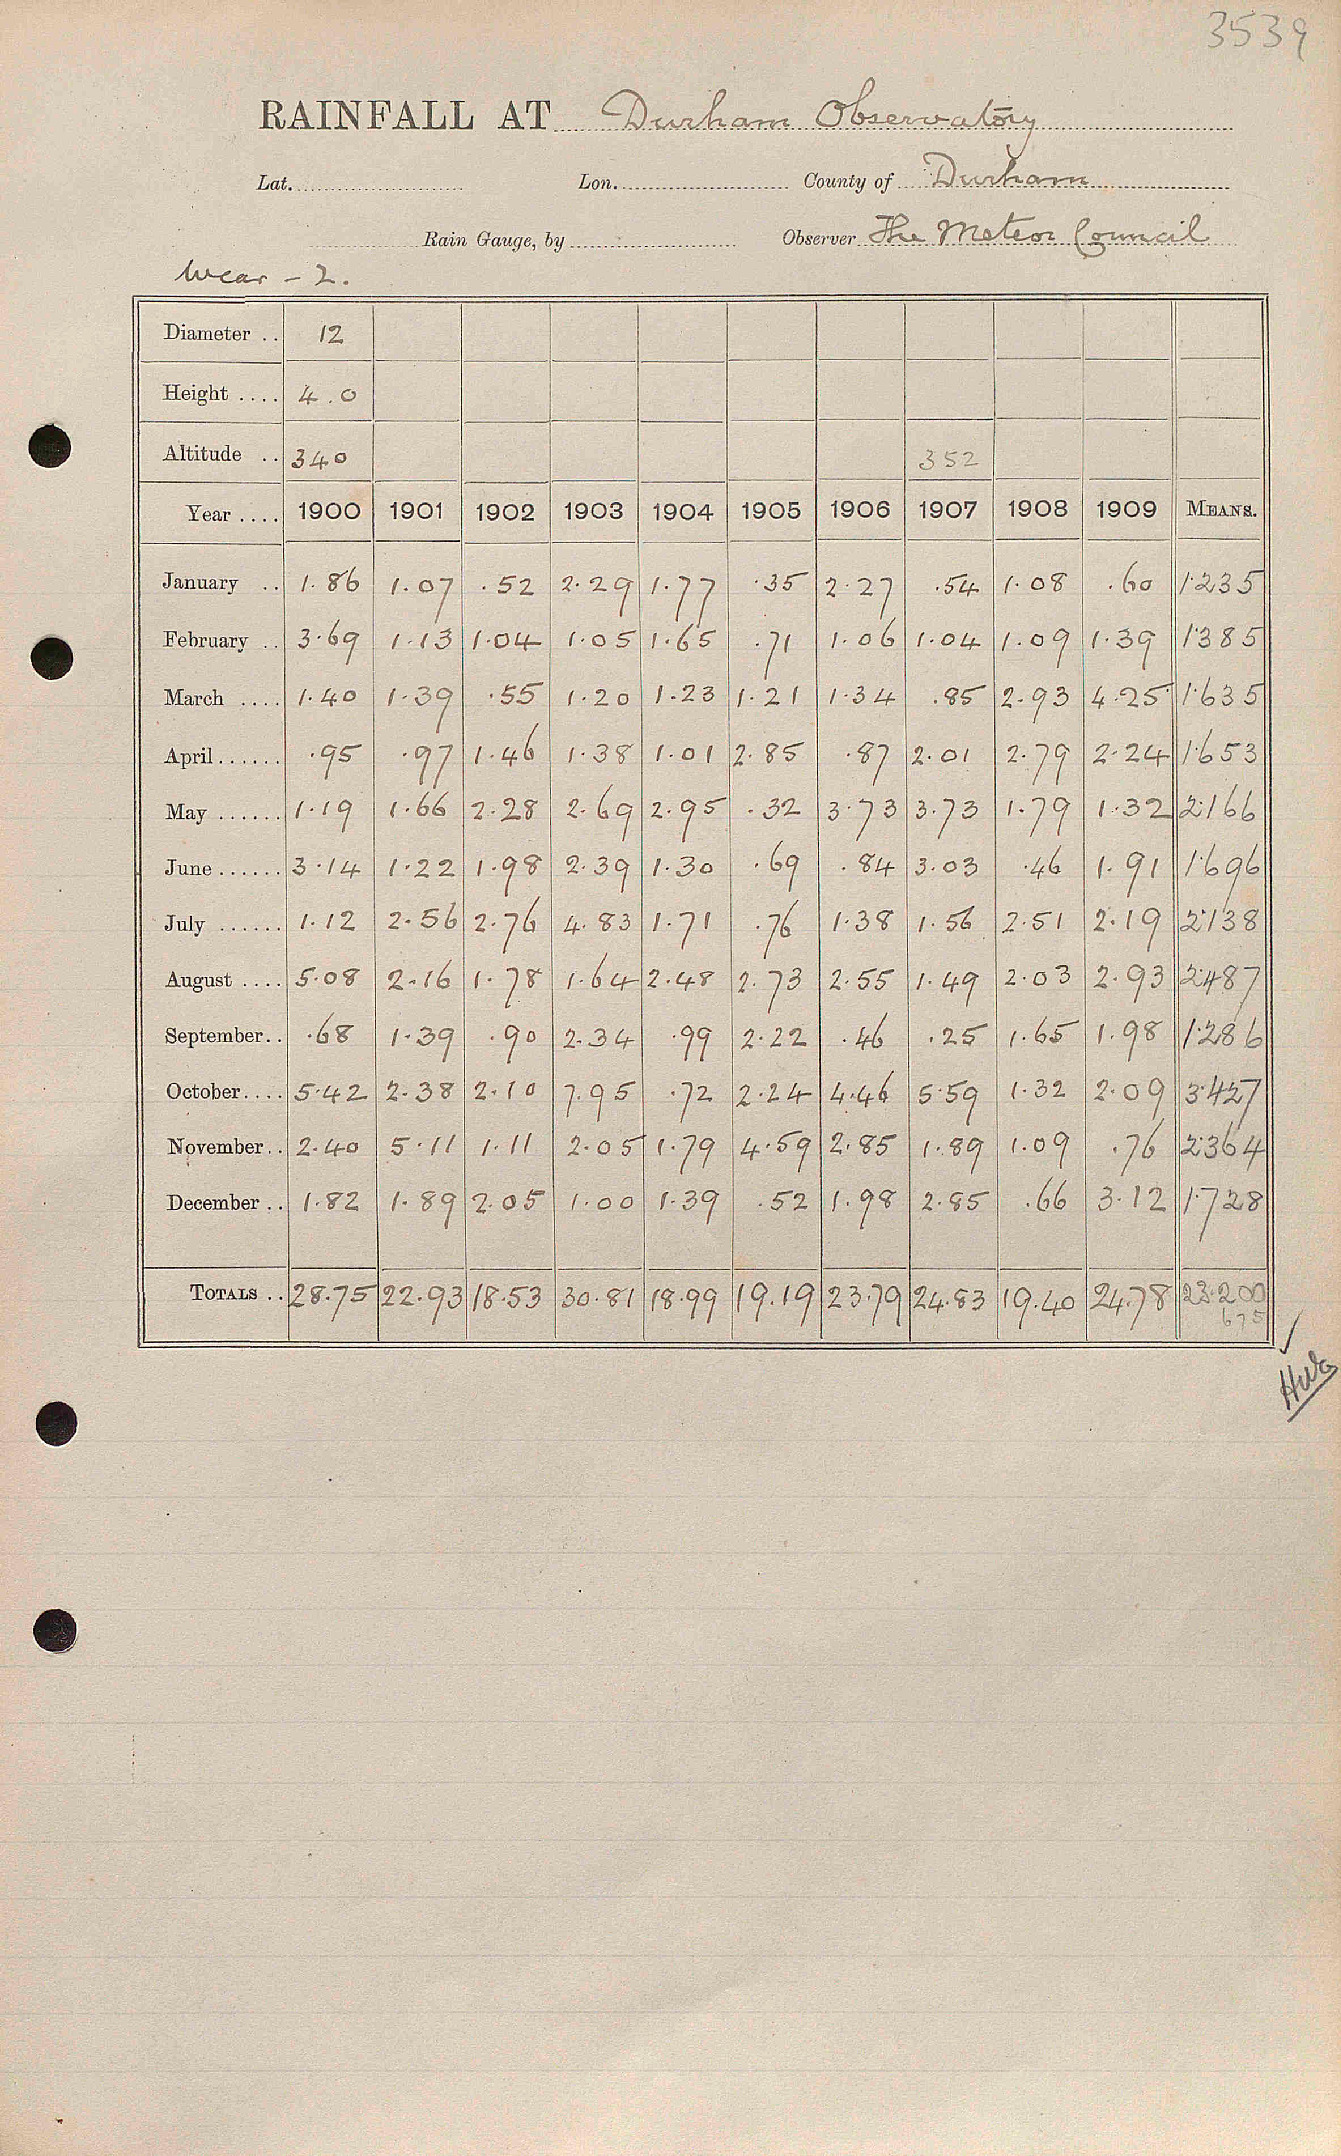 3539
RAINFALL AT Durham Observatory
Lat. Lon. County of Durham
Rain Gauge, by Observer The Meteor Council
Wear - 2.
Diameter .. 12
Height .... 4.0
Altitude .. 340 352
Year .... 1900 1901 1902 1903 1904 1905 1906 1907 1908 1909 MEANS.
January .. 1.86 1.07 .52 2.29 1.77 .35 2.27 .54 1.08 .60 1.235
February .. 3.69 1.13 1.04 1.05 1.65 .71 1.06 1.04 1.09 1.39 1.385
March .... 1.40 1.39 .55 1.20 1.23 1.21 1.34 .85 2.93 4.25 1.635
April...... .95 .97 1.46 1.38 1.01 2.85 .87 2.01 2.79 2.24 1.653
May ...... 1.19 1.66 2.28 2.69 2.95 .32 3.73 3.73 1.79 1.32 2.166
June...... 3.14 1.22 1.98 2.39 1.30 .69 .84 3.03 .46 1.91 1.696
July ...... 1.12 2.56 2.76 4.83 1.71 .76 1.38 1.56 2.51 2.19 2.138
August .... 5.08 2.16 1.78 1.64 2.48 2.73 2.55 1.49 2.03 2.93 2.487
September.. .68 1.39 .90 2.34 .99 2.22 .46 .25 1.65 1.98 1.286
October.... 5.42 2.38 2.10 7.95 .72 2.24 4.46 5.59 1.32 2.09 3.427
November.. 2.40 5.11 1.11 2.05 1.79 4.59 2.85 1.89 1.09 .76 2.364
December .. 1.82 1.89 2.05 1.00 1.39 .52 1.98 2.85 .66 3.12 1.728
TOTALS .. 28.75 22.93 18.53 30.81 18.99 19.19 23.79 24.83 19.40 24.78 23.200
675